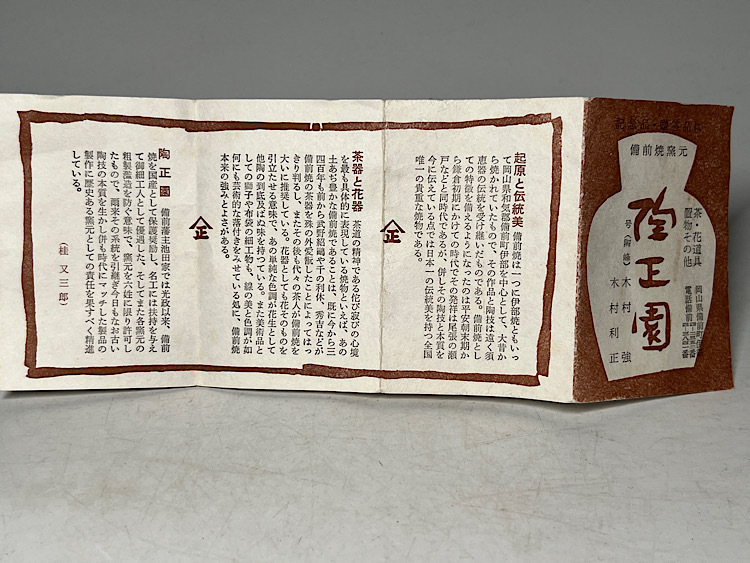 備前焼窯元
茶・花道具
置物・その他
陶正園
木村 強
木村利正
起原と伝統美 備前焼は一つに伊部焼ともいっ
て岡山県和気郡備前町伊部を中心として、大昔か
ら焼かれていたもので、その作品と陶技は遠く須
恵器の伝統を受け継いだものである。備前焼とし
ての特徴を備えるようになったのは平安朝末期か
ら鎌倉初期にかけての時代でその発祥は尾張の瀬
戸などと同時代であるが、併しその陶技と本質を
今に伝えている点では日本一の伝統美を持つ全国
唯一の貴重な焼物である。
正
茶器と花器 茶道の精神である侘び寂びの心境
を最も具体的に表現している焼物といえば、あの
土あぢ豊かな備前焼であることは、既に今から三
四百年も前から武野紹鴎や千の利休、秀吉などが
備前焼の茶器を殊の外愛翫したことによってはっ
きり判るし、またその後も代々の茶人が備前焼を
大いに推奨している。花器としても花そのものを
引立たせる意味で、あの単純な色調が花生として
他陶の到底及ばぬ味を持つている。また美術品と
しての獅子や布袋の細工物も、線の美と色調が如
何にも芸術的な落付きをみせている処に、備前焼
本来の強みとよさがある。
正
陶正園 備前藩主池田家では光政以来、備前
焼を国産として保護奨励し、名工には扶持を与え
て御細工人として優遇した、そしてまた各窯元の
粗製濫造を防ぐ意味で、窯元を六姓に限り許可し
たもので、爾来その系統を引継ぎ今日もなお古い
陶技の本質を生かし併も時代にマッチした製品の
製作に歴史ある窯元としての責任を果すべく精進
している。
(桂 又三郎)